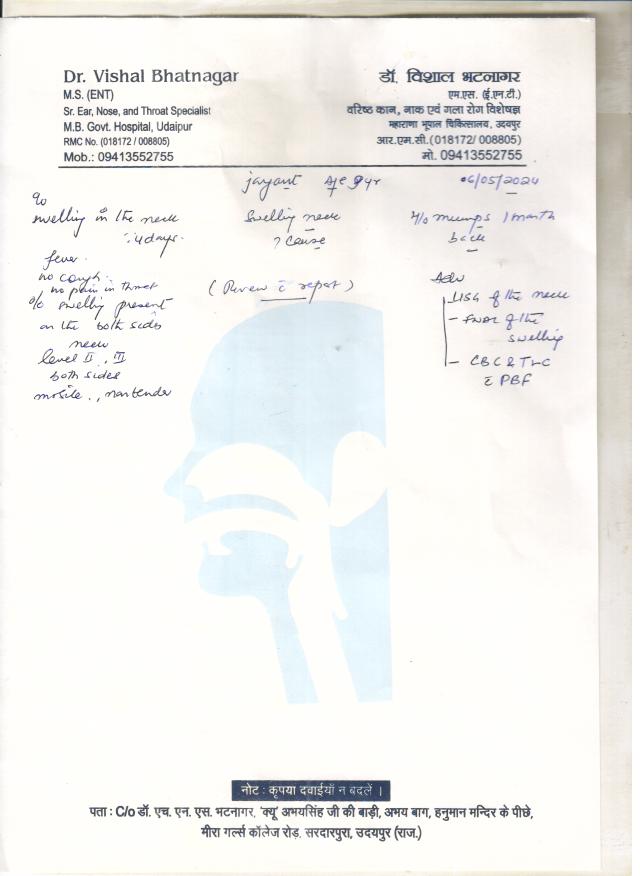 Dr. Vishal Bhatnagar
M.S. (ENT)
Sr. Ear, Nose, and Throat Specialist
M.B. Govt. Hospital, Udaipur
RMC No. (018172 / 008805)
Mob.: 09413552755
डॉ. विशाल भटनागर
एम.एस. (ई.एन.टी.)
वरिष्ठ कान, नाक एवं गला रोग विशेषज्ञ
महाराणा भूपाल चिकित्सालय, उदयपुर
आर.एम.सी.(018172/ 008805)
मो. 09413552755
jayant Age 9 yr 06/05/2024
c/o
swelling in the neck
: 4 days.
fever.
no cough.
no pain in throat
o/e swelling present
on the both sides
neck
level II, III
both sides
mobile., nontender
Swelling neck
? cause
(Review c report)
H/o mumps 1 month
back
Adv
USG of the neck
- FNAC of the
swelling
- CBC & TLC
c PBF
नोट : कृपया दवाईयाँ न बदलें ।
पता : C/o डॉ. एच. एन. एस. भटनागर, 'क्यू' अभयसिंह जी की बाड़ी, अभय बाग, हनुमान मन्दिर के पीछे,
मीरा गर्ल्स कॉलेज रोड़, सरदारपुरा, उदयपुर (राज.)